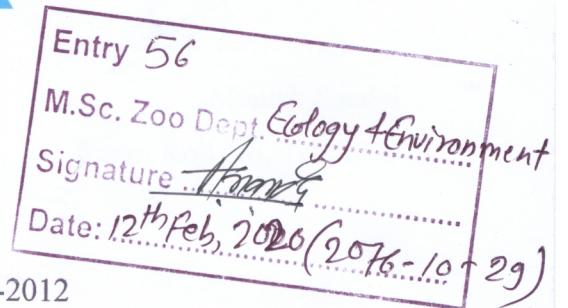 Entry 56
M.Sc. Zoo Dept. Ecology & Environment
Signature
Date: 12th Feb, 2020 (2076-10-29)
-2012